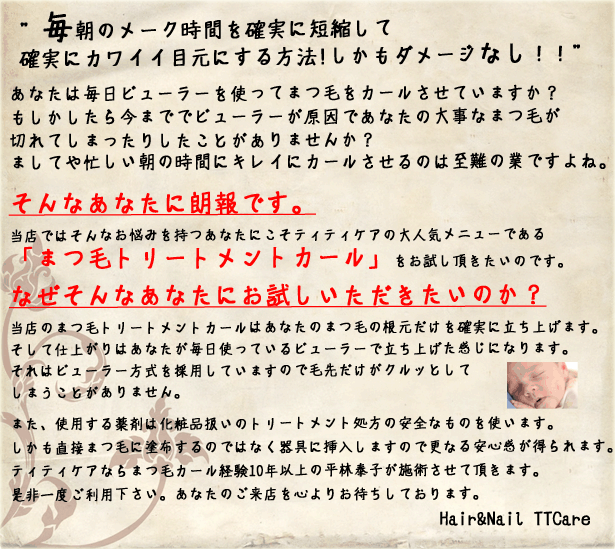 " 毎朝のメーク時間を確実に短縮して
確実にカワイイ目元にする方法!しかもダメージなし！！"
あなたは毎日ビューラーを使ってまつ毛をカールさせていますか？
もしかしたら今まででビューラーが原因であなたの大事なまつ毛が
切れてしまったりしたことがありませんか？
ましてや忙しい朝の時間にキレイにカールさせるのは至難の業ですよね。
そんなあなたに朗報です。
当店ではそんなお悩みを持つあなたにこそティティケアの大人気メニューである
「まつ毛トリートメントカール」をお試し頂きたいのです。
なぜそんなあなたにお試しいただきたいのか？
当店のまつ毛トリートメントカールはあなたのまつ毛の根元だけを確実に立ち上げます。
そして仕上がりはあなたが毎日使っているビューラーで立ち上げた感じになります。
それはビューラー方式を採用していますので毛先だけがクルッとして
しまうことがありません。
また、使用する薬剤は化粧品扱いのトリートメント処方の安全なものを使います。
しかも直接まつ毛に塗布するのではなく器具に挿入しますので更なる安心感が得られます。
ティティケアならまつ毛カール経験10年以上の平林泰子が施術させて頂きます。
是非一度ご利用下さい。あなたのご来店を心よりお待ちしております。
Hair&Nail TTCare